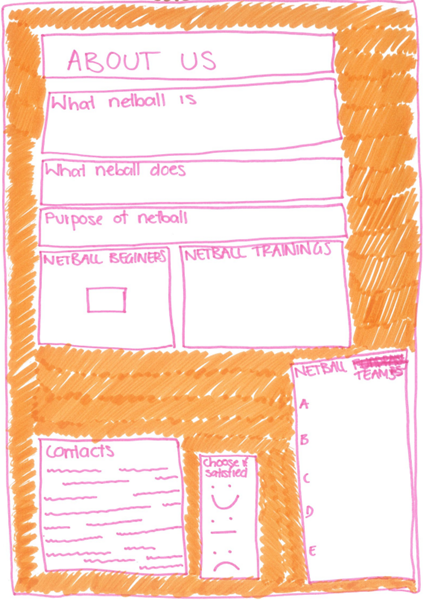 ABOUT US
What netball is
What neball does
Purpose of netball
NETBALL BEGINERS
NETBALL TRAININGS
NETBALL
TEAMS
A
B
C
D
E
Contacts
choose if
satisfied
:)
:|
:(